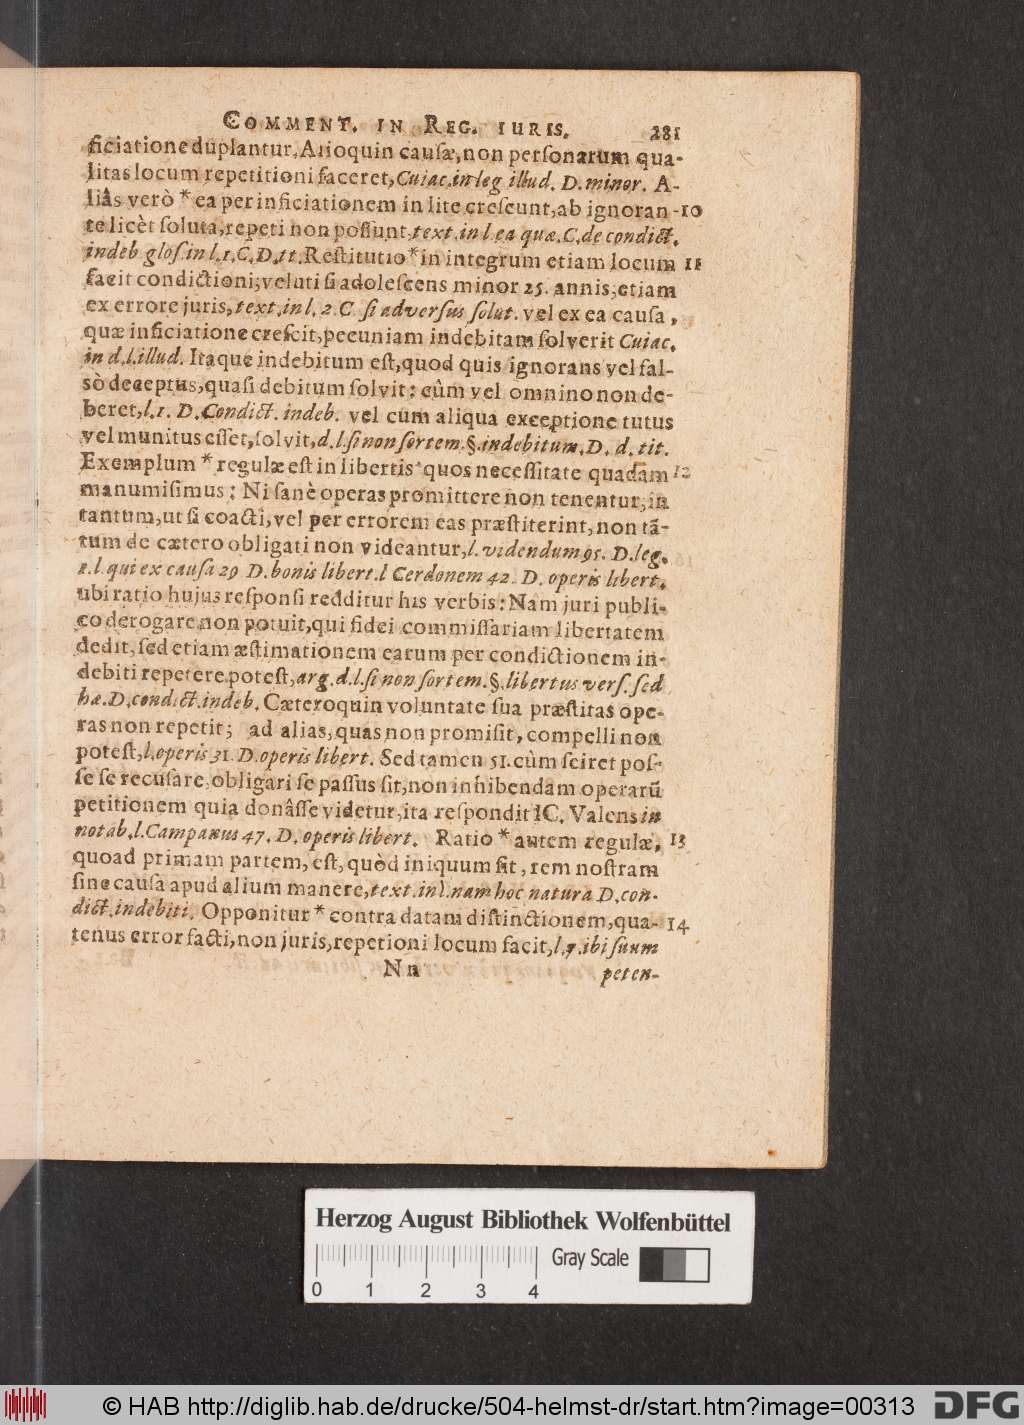 COMMENT. IN REG. IURIS. 281
ficiatione duplantur. Alioquin causæ, non personarum qua-
litas locum repetitioni faceret, Cuiac. in leg illud. D. minor. A-
liâs verò * ea per inficiationem in lite crescunt, ab ignoran- 10
te licèt soluta, repeti non possunt, text. in l. ea quæ. C. de condict.
indeb glos. in l. 1. C. D. tt. Restitutio * in integrum etiam locum 11
facit condictioni; veluti si adolescens minor 25. annis, etiam
ex errore juris, text. in l. 2. C. si adversus solut. vel ex ea causa,
quæ inficiatione crescit, pecuniam indebitam solverit Cuiac.
in d. l. illud. Itaque indebitum est, quod quis ignorans vel fal-
sò deceptus, quasi debitum solvit: cûm vel omnino non de-
beret, l. 1. D. Condict. indeb. vel cum aliqua exceptione tutus
vel munitus esset, solvit, d. l. si non sortem. §. indebitum. D. d. tit.
Exemplum * regulæ est in libertis quos necessitate quadam 12
manumisimus: Ni sanè operas promittere non tenentur, in
tantum, ut si coacti, vel per errorem eas præstiterint, non tã-
tum de cætero obligati non videantur, l. videndum 95. D. leg.
1. l. qui ex causa 29 D. bonis libert. l Cerdonem 42. D. operis libert.
ubi ratio hujus responsi redditur his verbis: Nam juri publi-
co derogare non potuit, qui fidei commissariam libertatem
dedit, sed etiam æstimationem earum per condictionem in-
debiti repetere potest, arg. d. l. si non sortem. §. libertus vers. sed
hæ. D. condict. indeb. Cæteroquin voluntate sua præstitas ope-
ras non repetit; ad alias, quas non promisit, compelli non
potest, l. operis 31. D. operis libert. Sed tamen si. cùm sciret pos-
se se recusare, obligari se passus sit, non inhibendam operarũ
petitionem quia donâsse videtur, ita respondit IC. Valens in
notab. l. Campanus 47. D. operis libert. Ratio * autem regulæ, 13
quoad primam partem, est, quòd iniquum sit, rem nostram
sine causa apud alium manere, text. in l. nam hoc natura D. con-
dict. indebiti. Opponitur * contra datam distinctionem, qua- 14
tenus error facti, non juris, repetioni locum facit, l. 7. ibi suum
Nn peten-
Herzog August Bibliothek Wolfenbüttel
Gray Scale
0 1 2 3 4
© HAB http://diglib.hab.de/drucke/504-helmst-dr/start.htm?image=00313
DFG